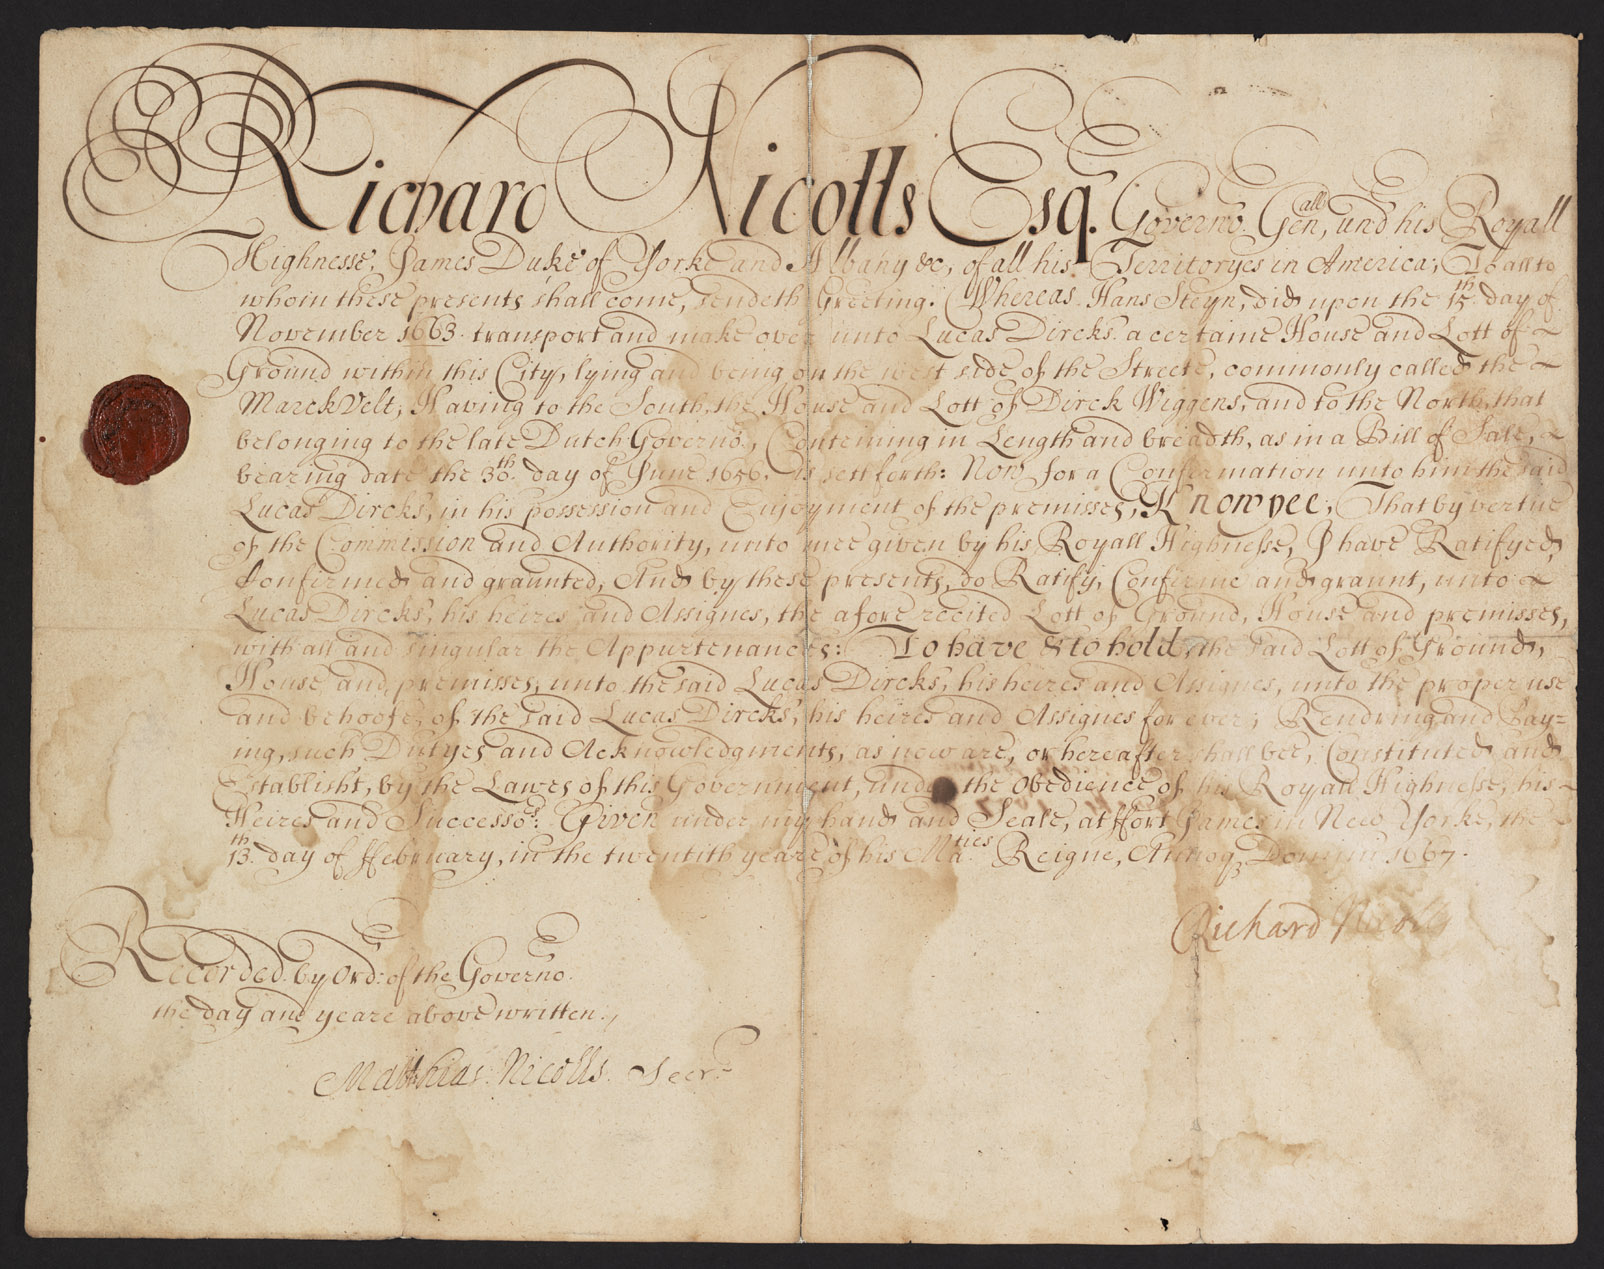 Richard Nicolls Esq. Governo.r Gen.all und.r his Royall
Highnesse, James Duke of Yorke and Albany &c, of all his Territoryes in America; To all to
whom these presents shall come, sendeth Greeting. Whereas Hans Steyn, did upon the 15.th day of
November 1663. transport and make over unto Lucas Dircks a certaine House and Lott of ~
Ground within this City, lying and being on the west side of the Streete, commonly called the ~
Marckvelt, Having to the South, the House and Lott of Dirck Wiggens, and to the North, that
belonging to the late Dutch Governo.r, Conteining in Length and breadth, as in a Bill of Sale, ~
bearing date the 30.th day of June 1656, is sett forth: Now for a Confirmation unto him the said
Lucas Dircks, in his possession and Enjoyment of the premisses, Know yee, That by vertue
of the Commission and Authority, unto mee given by his Royall Highnesse, I have Ratifyed,
Confirmed and graunted, And by these presents, do Ratify, Confirme and graunt, unto ~
Lucas Dircks, his heires and Assignes, the afore recited Lott of Ground, House and premisses,
with all and singular the Appurtenances: To have & to hold, the said Lott of Ground,
House and premisses, unto the said Lucas Dircks, his heires and Assignes, unto the proper use
and behoofe, of the said Lucas Dircks, his heires and Assignes for ever; Rendring and Pay=
ing, such Dutyes and Acknowledgments, as now are, or hereafter shall bee, Constituted and
Establisht, by the Lawes of this Government, under the Obedience of his Royall Highnesse, his ~
Heires and Successo.rs: Given under my hand and Seale, at ffort James in New Yorke, the ~
13.th day of ffebruary, in the twentith yeare of his Ma.ties Reigne, Annoq Domini 1667.
Richard Nicolls
Recorded by Ord.r of the Governo.r
the day and yeare above written.,
Matthias Nicolls. Secr.